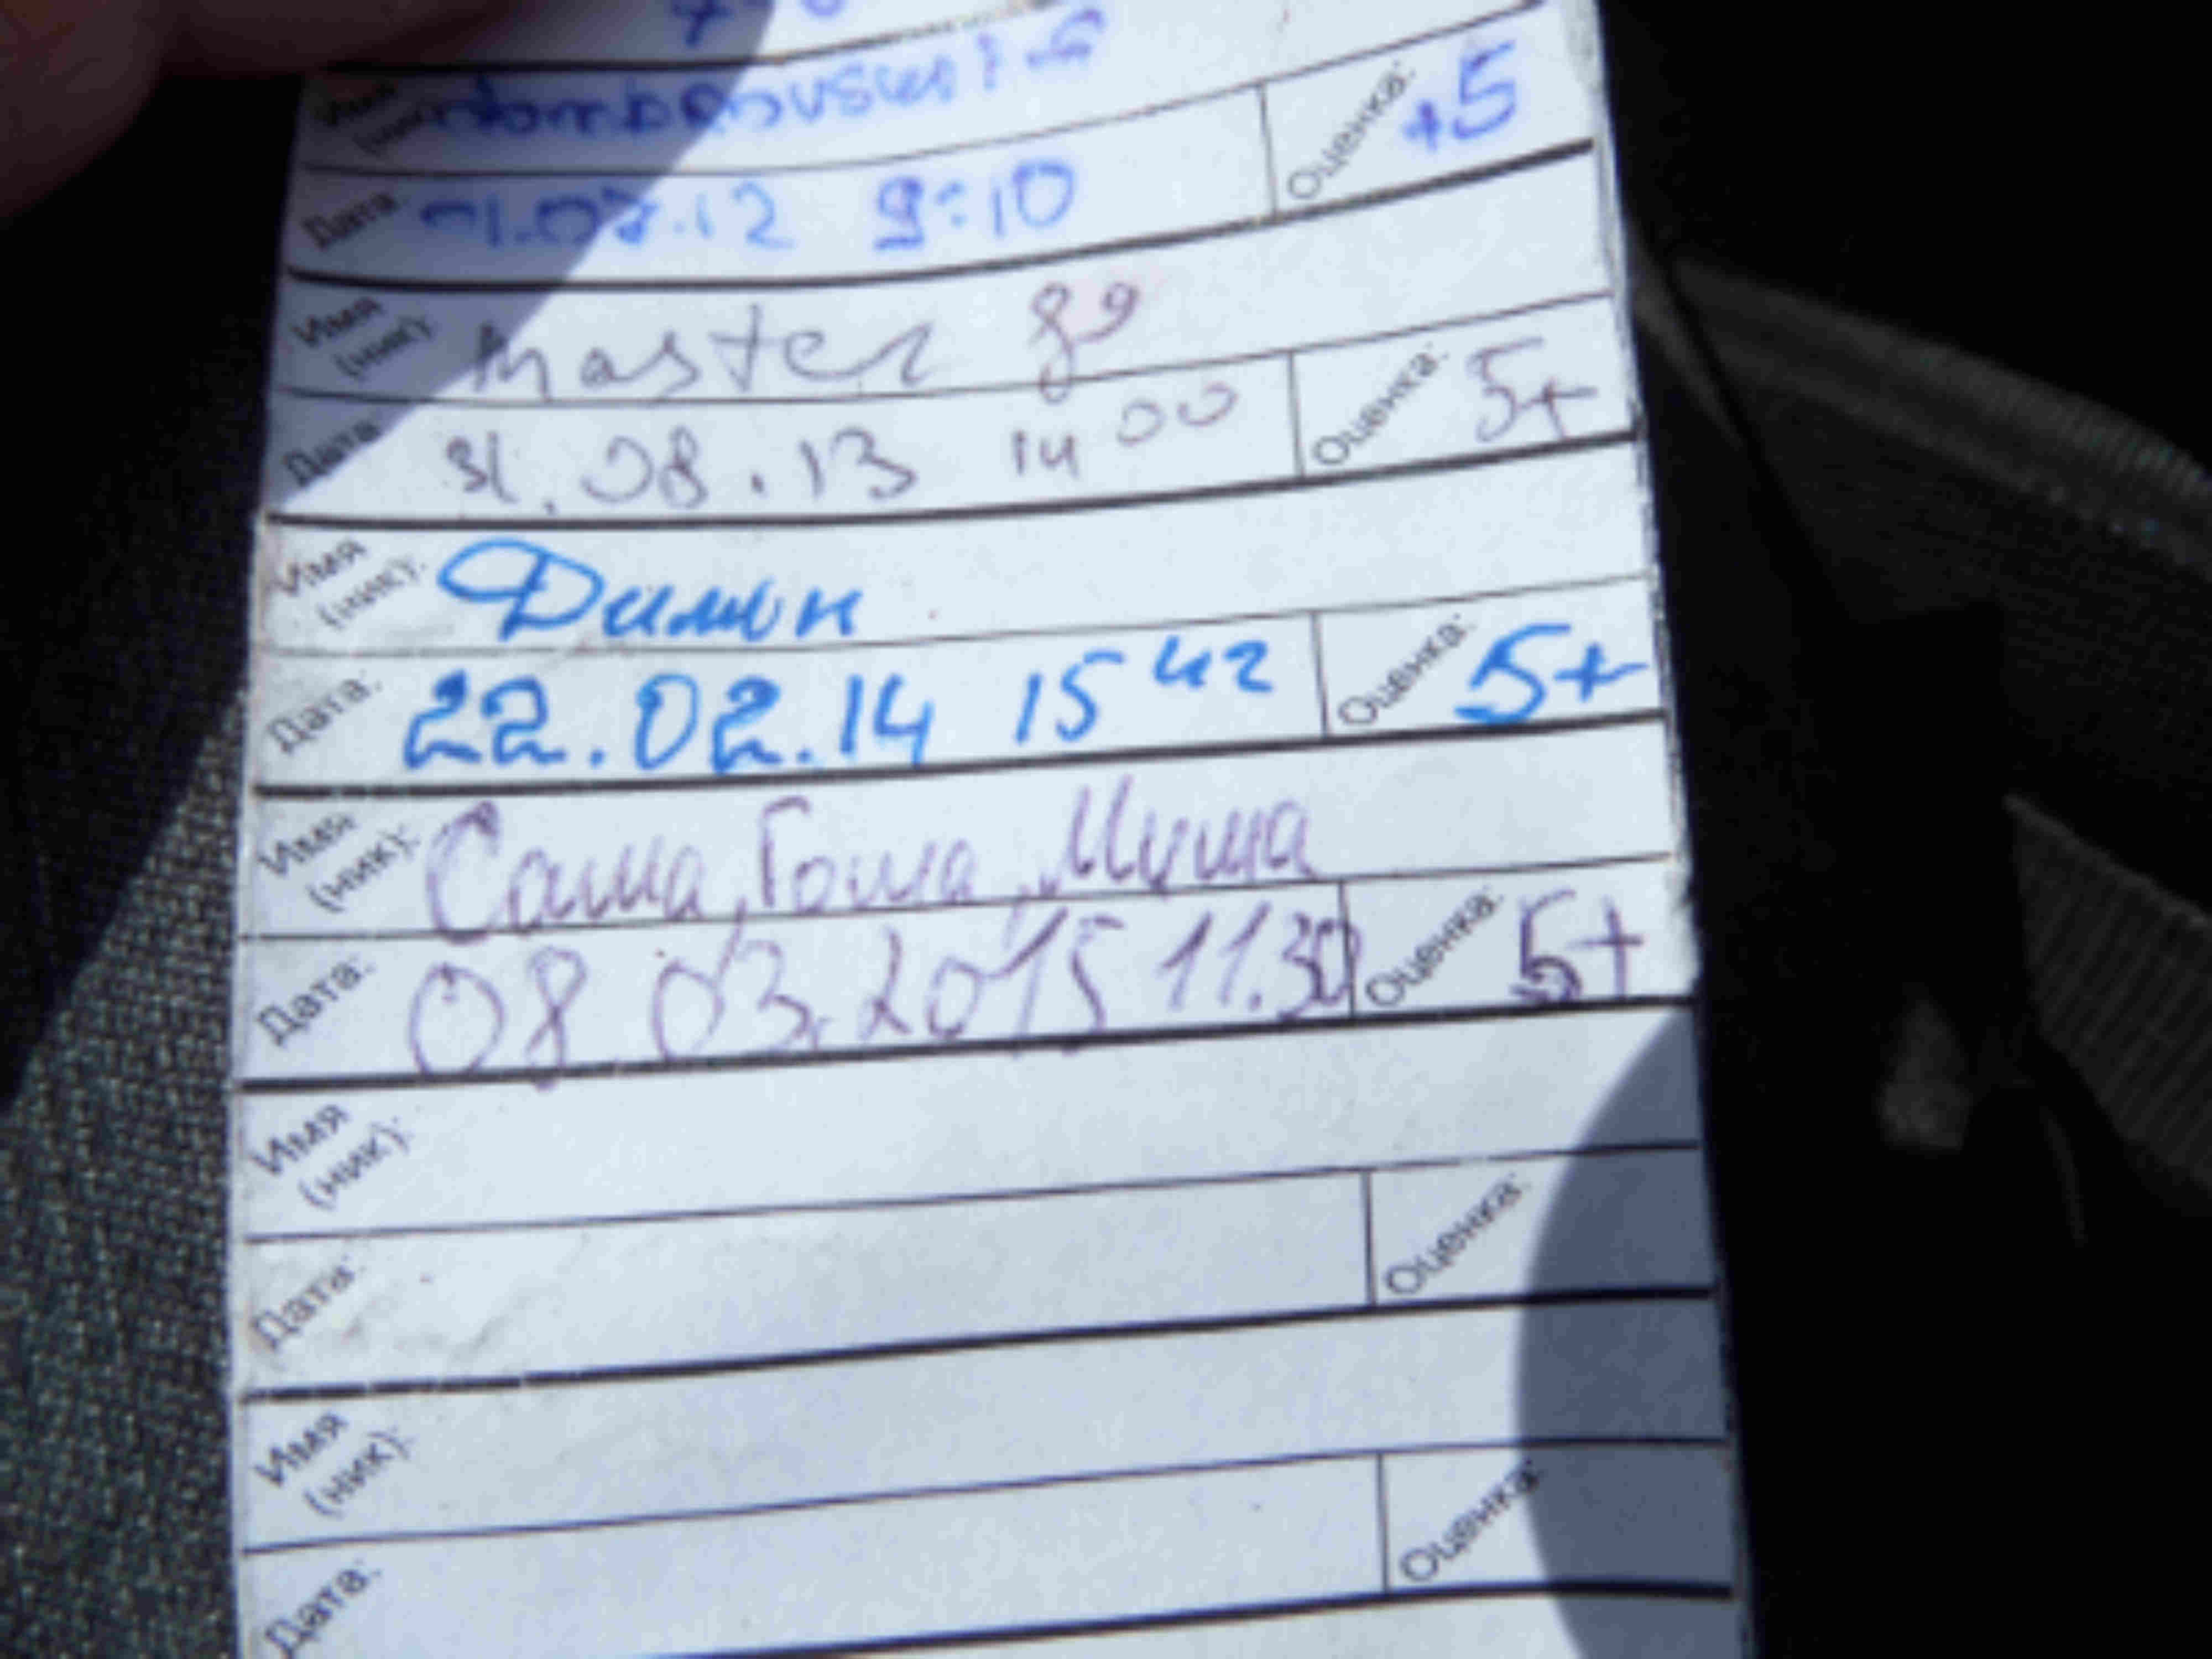 Имя (ник):
Дата: 1.07.12 9:10 Оценка: +5
Имя (ник): master 89
Дата: 31.08.13 14 00 Оценка: 5+
Имя (ник): Димон
Дата: 22.02.14 15 42 Оценка: 5+
Имя (ник): Саша, Гоша, Миша
Дата: 08.03.2015 11.30 Оценка: 5+
Имя (ник):
Дата: Оценка:
Имя (ник):
Дата: Оценка: